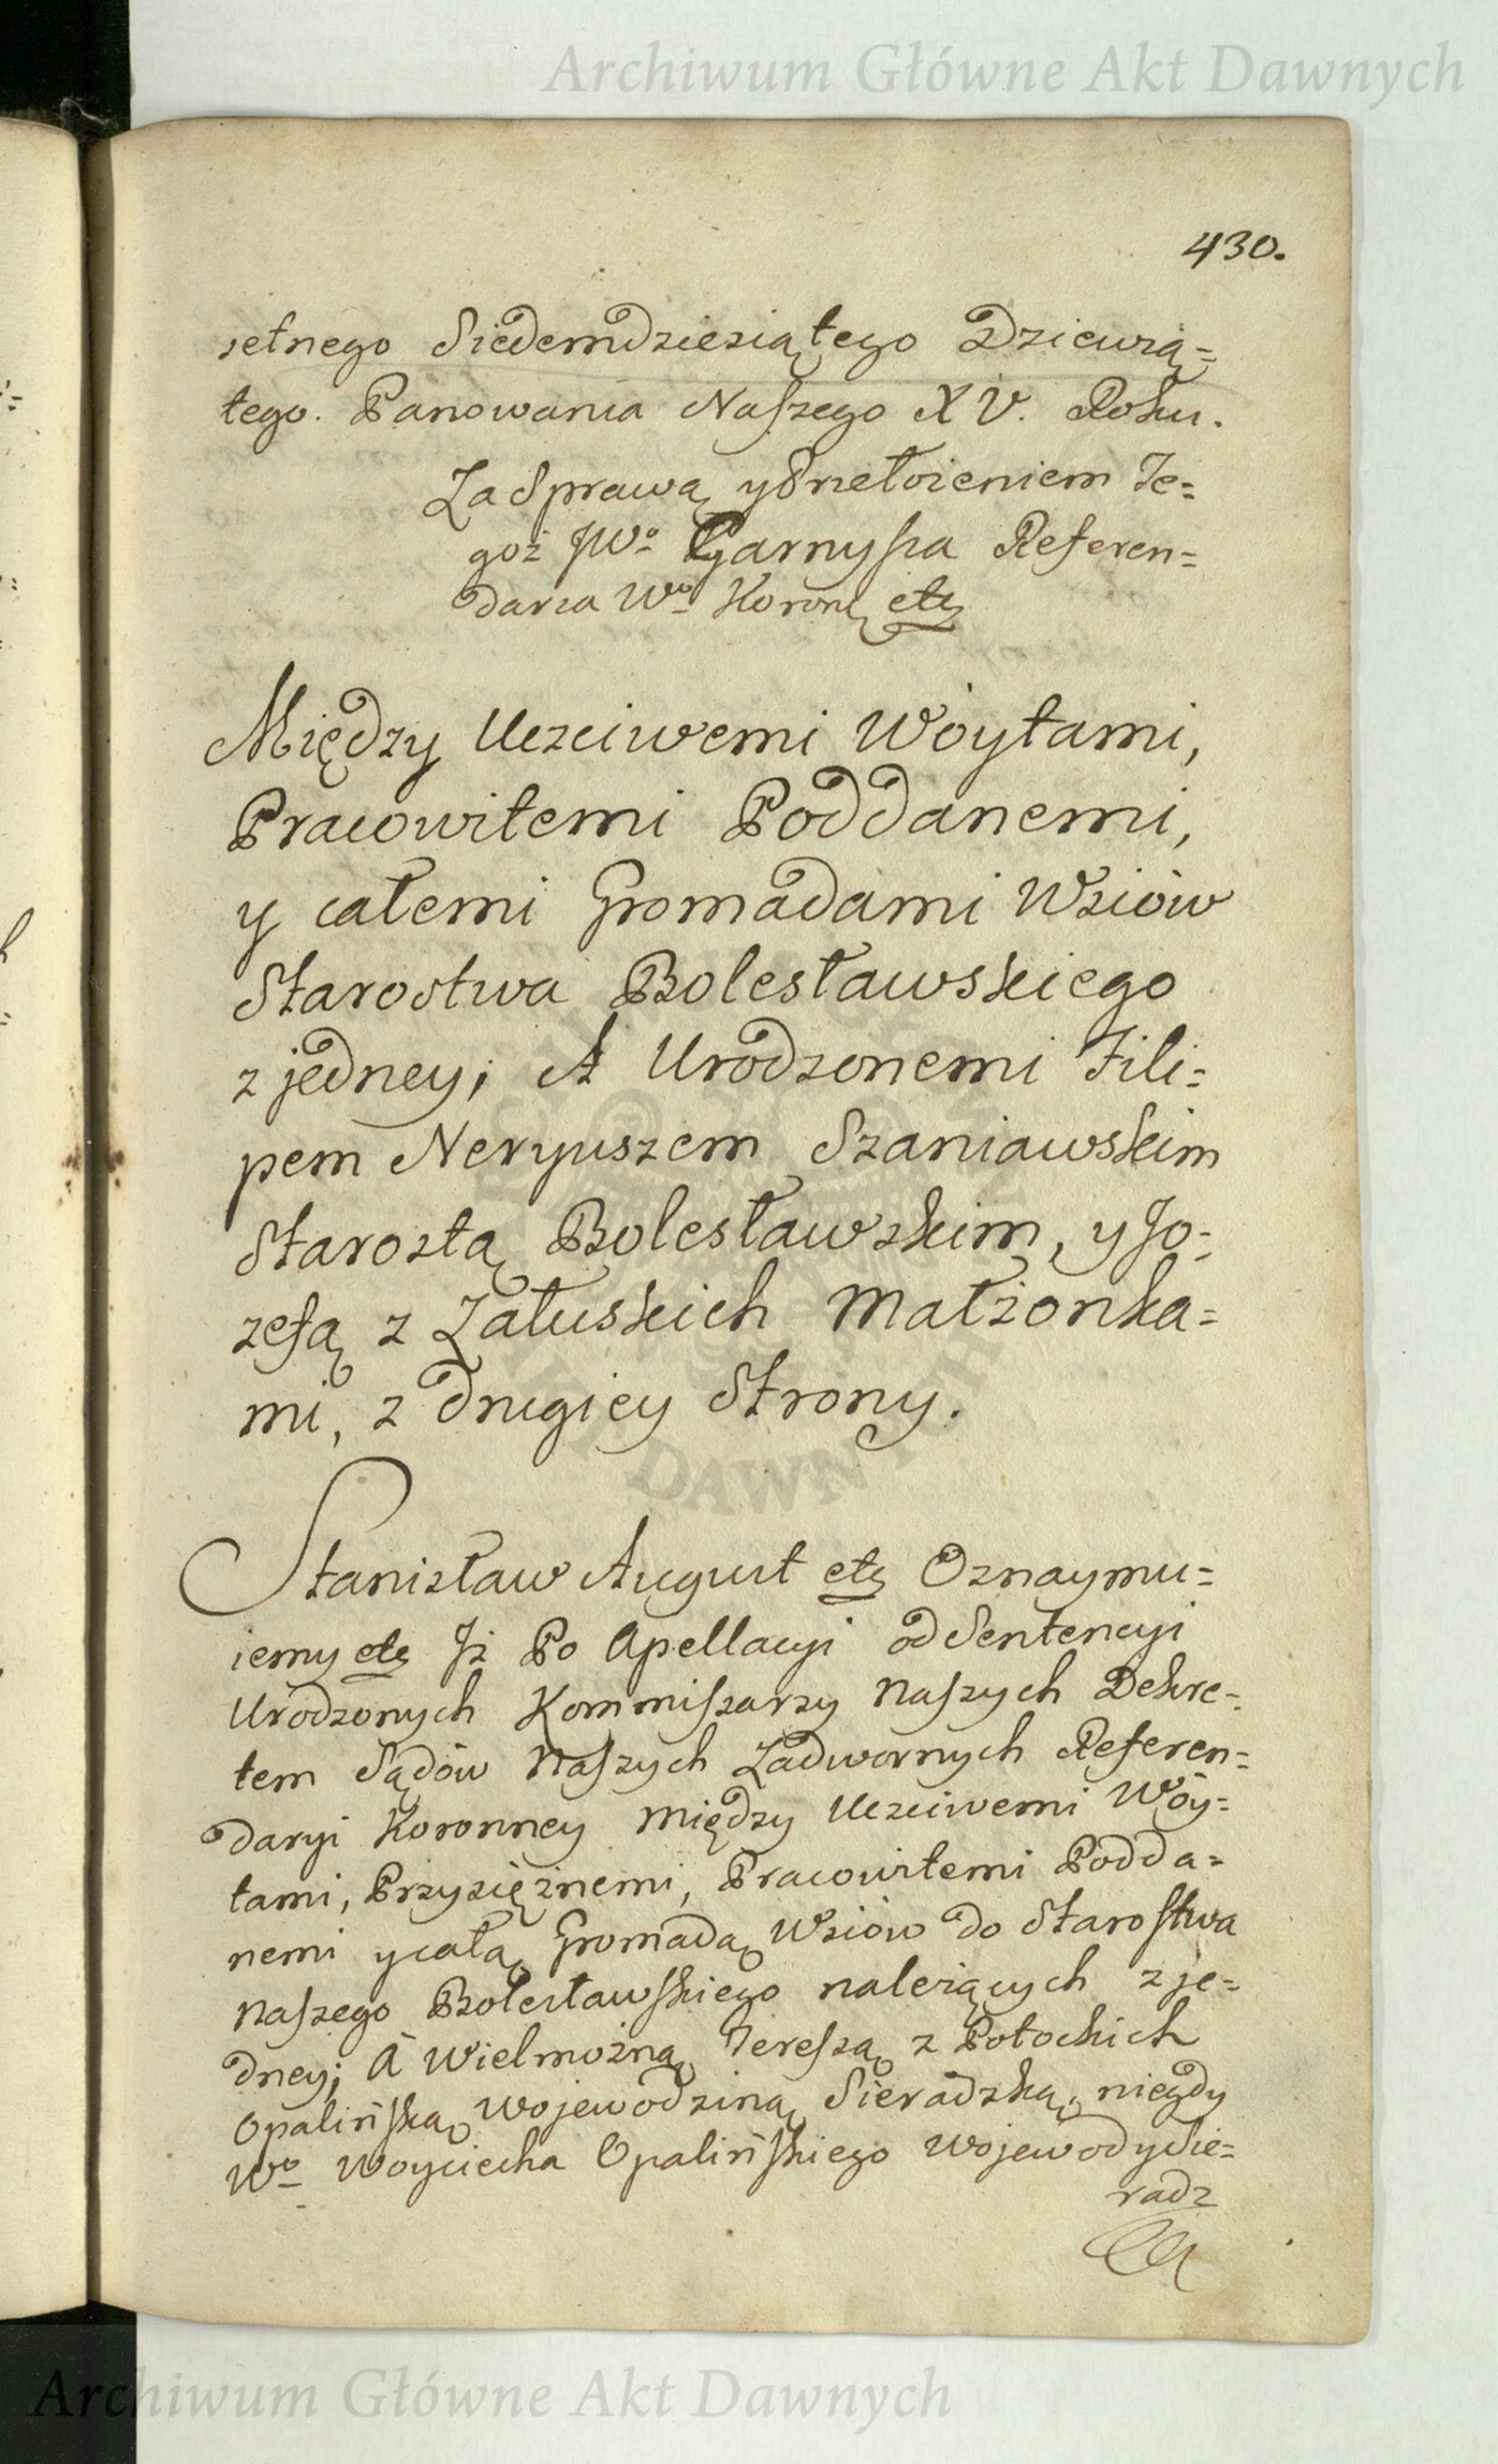 Archiwum Główne Akt Dawnych
430.
setnego Siedemdziesiątego Dziewią=
tego. Panowania Naszego XV. Roku.
Za Sprawą y Doełożeniem Te=
goż JWo Garnysza Referen=
darza Wo Koronę etc
Między Uczciwemi Woytami,
Pracowitemi Poddanemi,
y całemi Gromadami Wsiów
Starostwa Bolesławskiego
z jedney; A Urodzonemi Fili=
pem Neryuszem Szaniawskim
Starostą Bolesławskim, y Jo=
zefą z Załuskich Małżonka=
mi, z drugiey Strony.
Stanisław August etc Oznaymu=
iemy etc Iż Po Apellacyi od Sentencyi
Urodzonych Kommissarzy Naszych Dekre=
tem Sądów Naszych Zadwornych Referen=
daryi Koronney między Uczciwemi Wóy=
tami, Przysiężnemi, Pracowitemi Podda=
nemi y całą Gromadą Wsiów do Starostwa
Naszego Bolesławskiego należących z je=
dney; A Wielmożną Teressą z Potockich
Opalińską Wojewodziną Sieradzką, niegdy
Wo Woyciecha Opalińskiego Wojewody Sie=
radz
Archiwum Główne Akt Dawnych